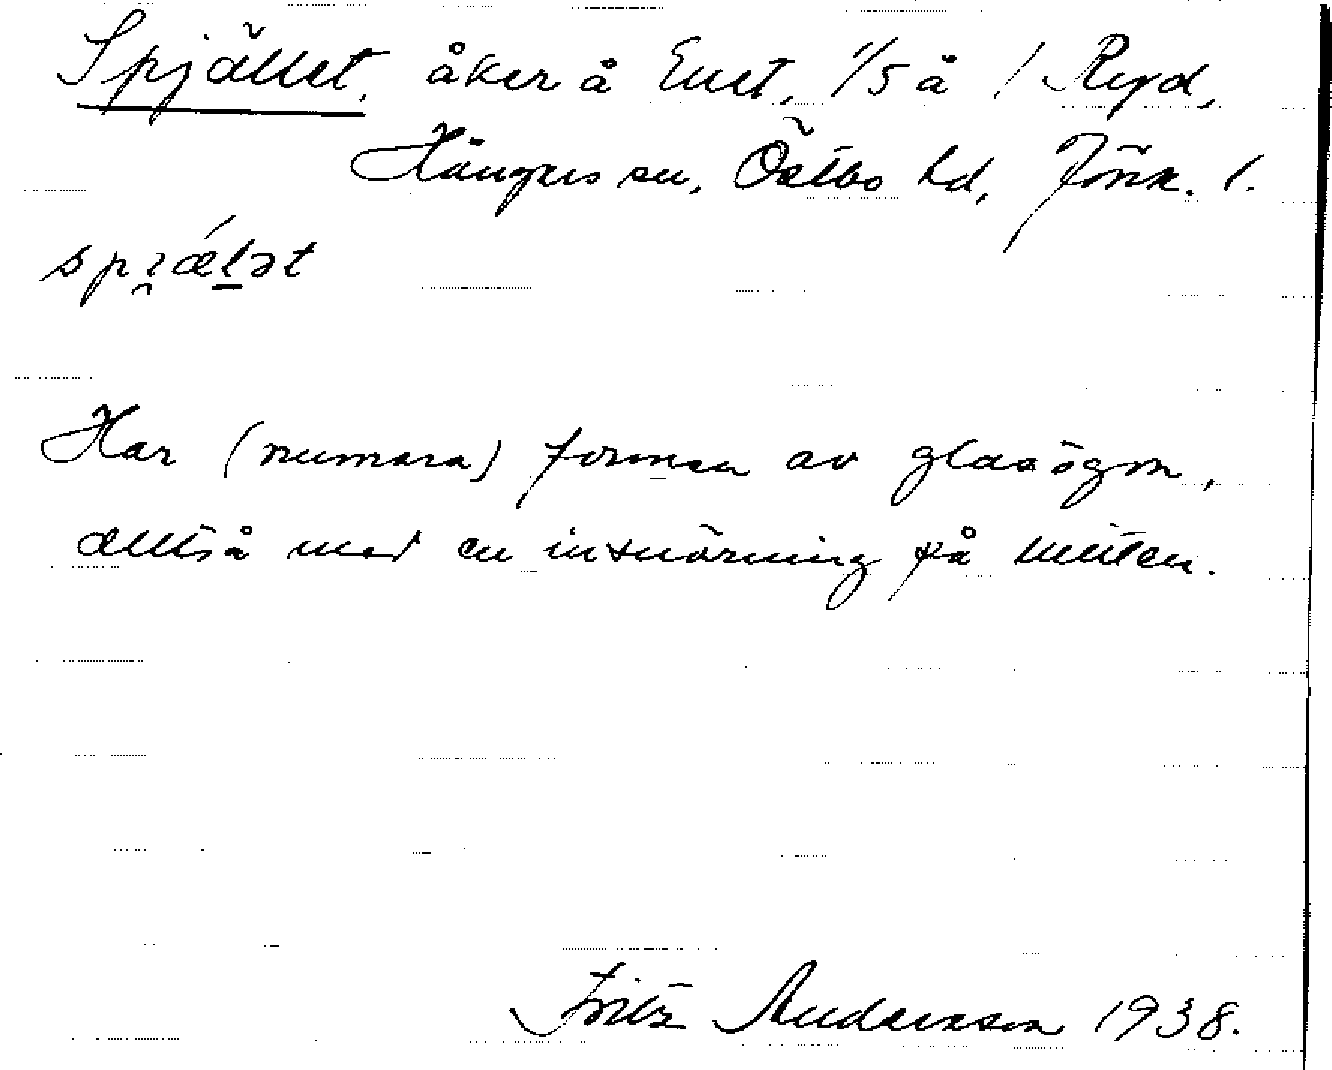 Spjället, åker å Enet, 1/5 å 1 Ryd,
Hångers sn, Östbo hd, Jönk. l.
spi̯ǽlət
Har (numera) formen av glasögon,
alltså med en insnörning på mitten.
Fritz Anderson 1938.